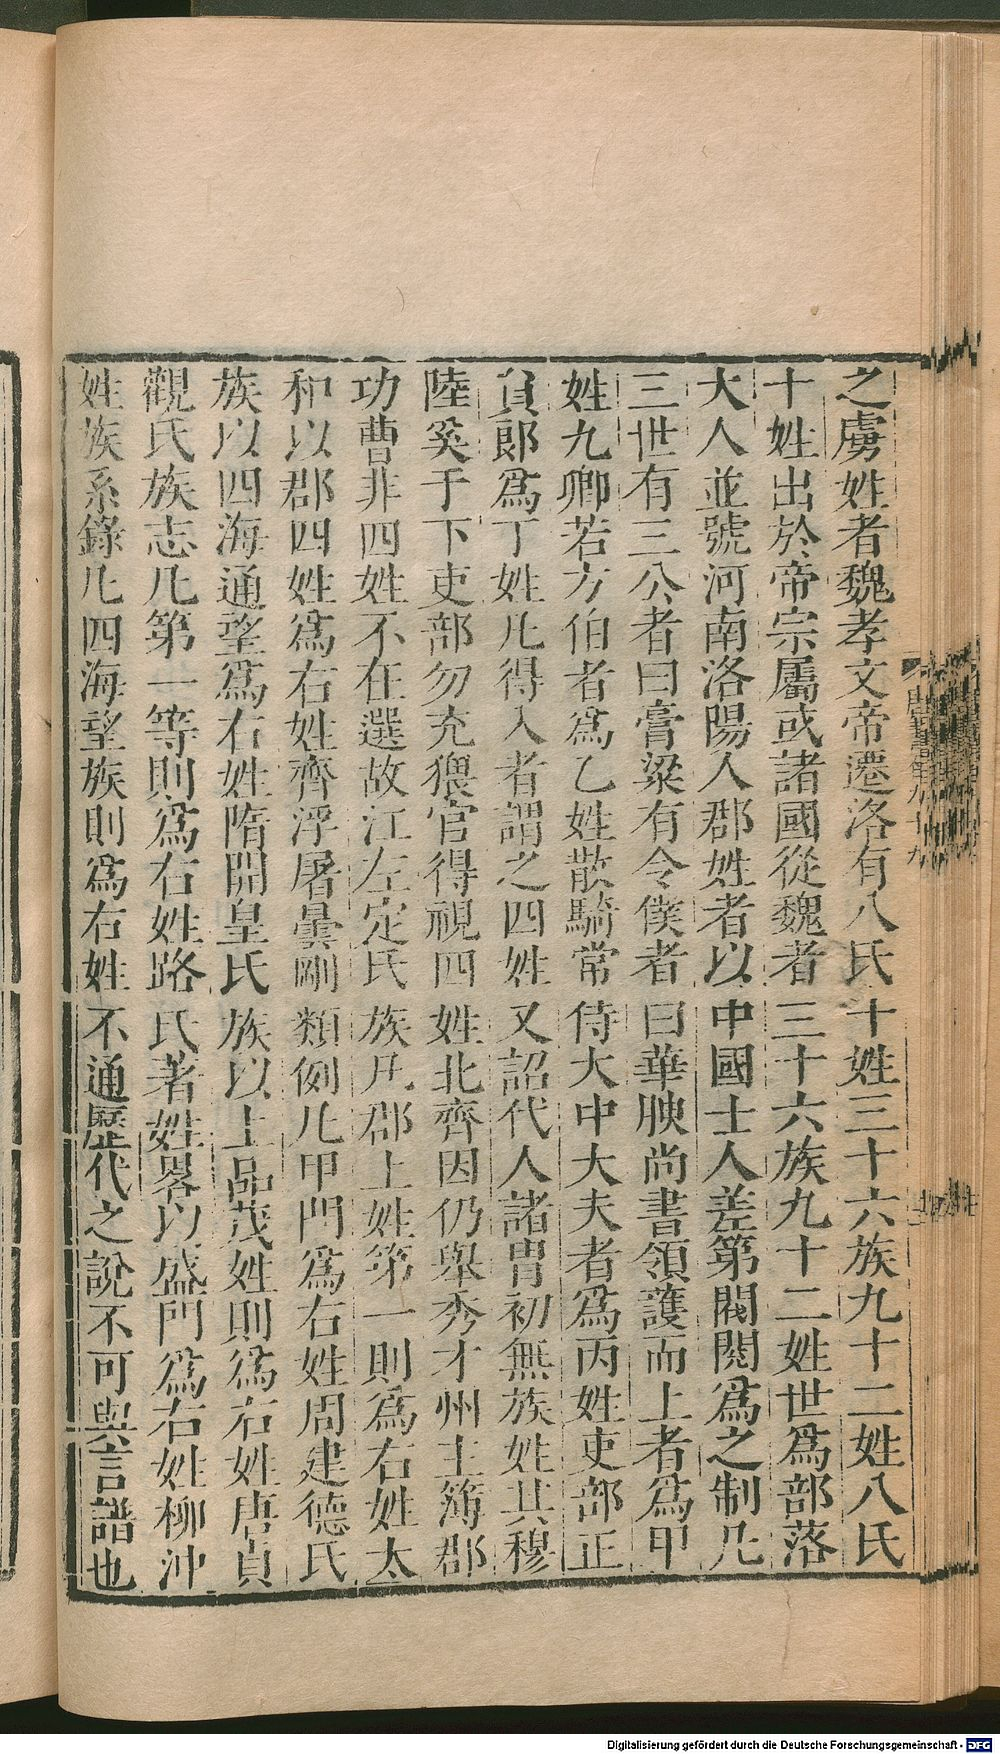 之虜姓者魏孝文帝遷洛有八氏十姓三十六族九十二姓八氏
十姓出於帝宗屬或諸國從魏者三十六族九十二姓世爲部落
大人並號河南洛陽人郡姓者以中國士人差第閥閱爲之制凡
三世有三公者曰膏粱有令僕者曰華腴尚書領護而上者爲甲
姓九卿若方伯者爲乙姓散騎常侍大中大夫者爲丙姓吏部正
員郎爲丁姓凡得入者謂之四姓又詔代人諸冑初無族姓其穆
陸奚于下吏部勿充猥官得視四姓北齊因仍舉秀才州主簿郡
功曹非四姓不在選故江左定氏族凡郡上姓第一則爲右姓太
和以郡四姓爲右姓齊浮屠曇剛類例凡甲門爲右姓周建德氏
族以四海通望爲右姓隋開皇氏族以上品茂姓則爲右姓唐貞
觀氏族志凡第一等則爲右姓路氏著姓畧以盛門爲右姓柳沖
姓族系錄凡四海望族則爲右姓不通歷代之說不可與言譜也
Digitalisierung gefördert durch die Deutsche Forschungsgemeinschaft - DFG